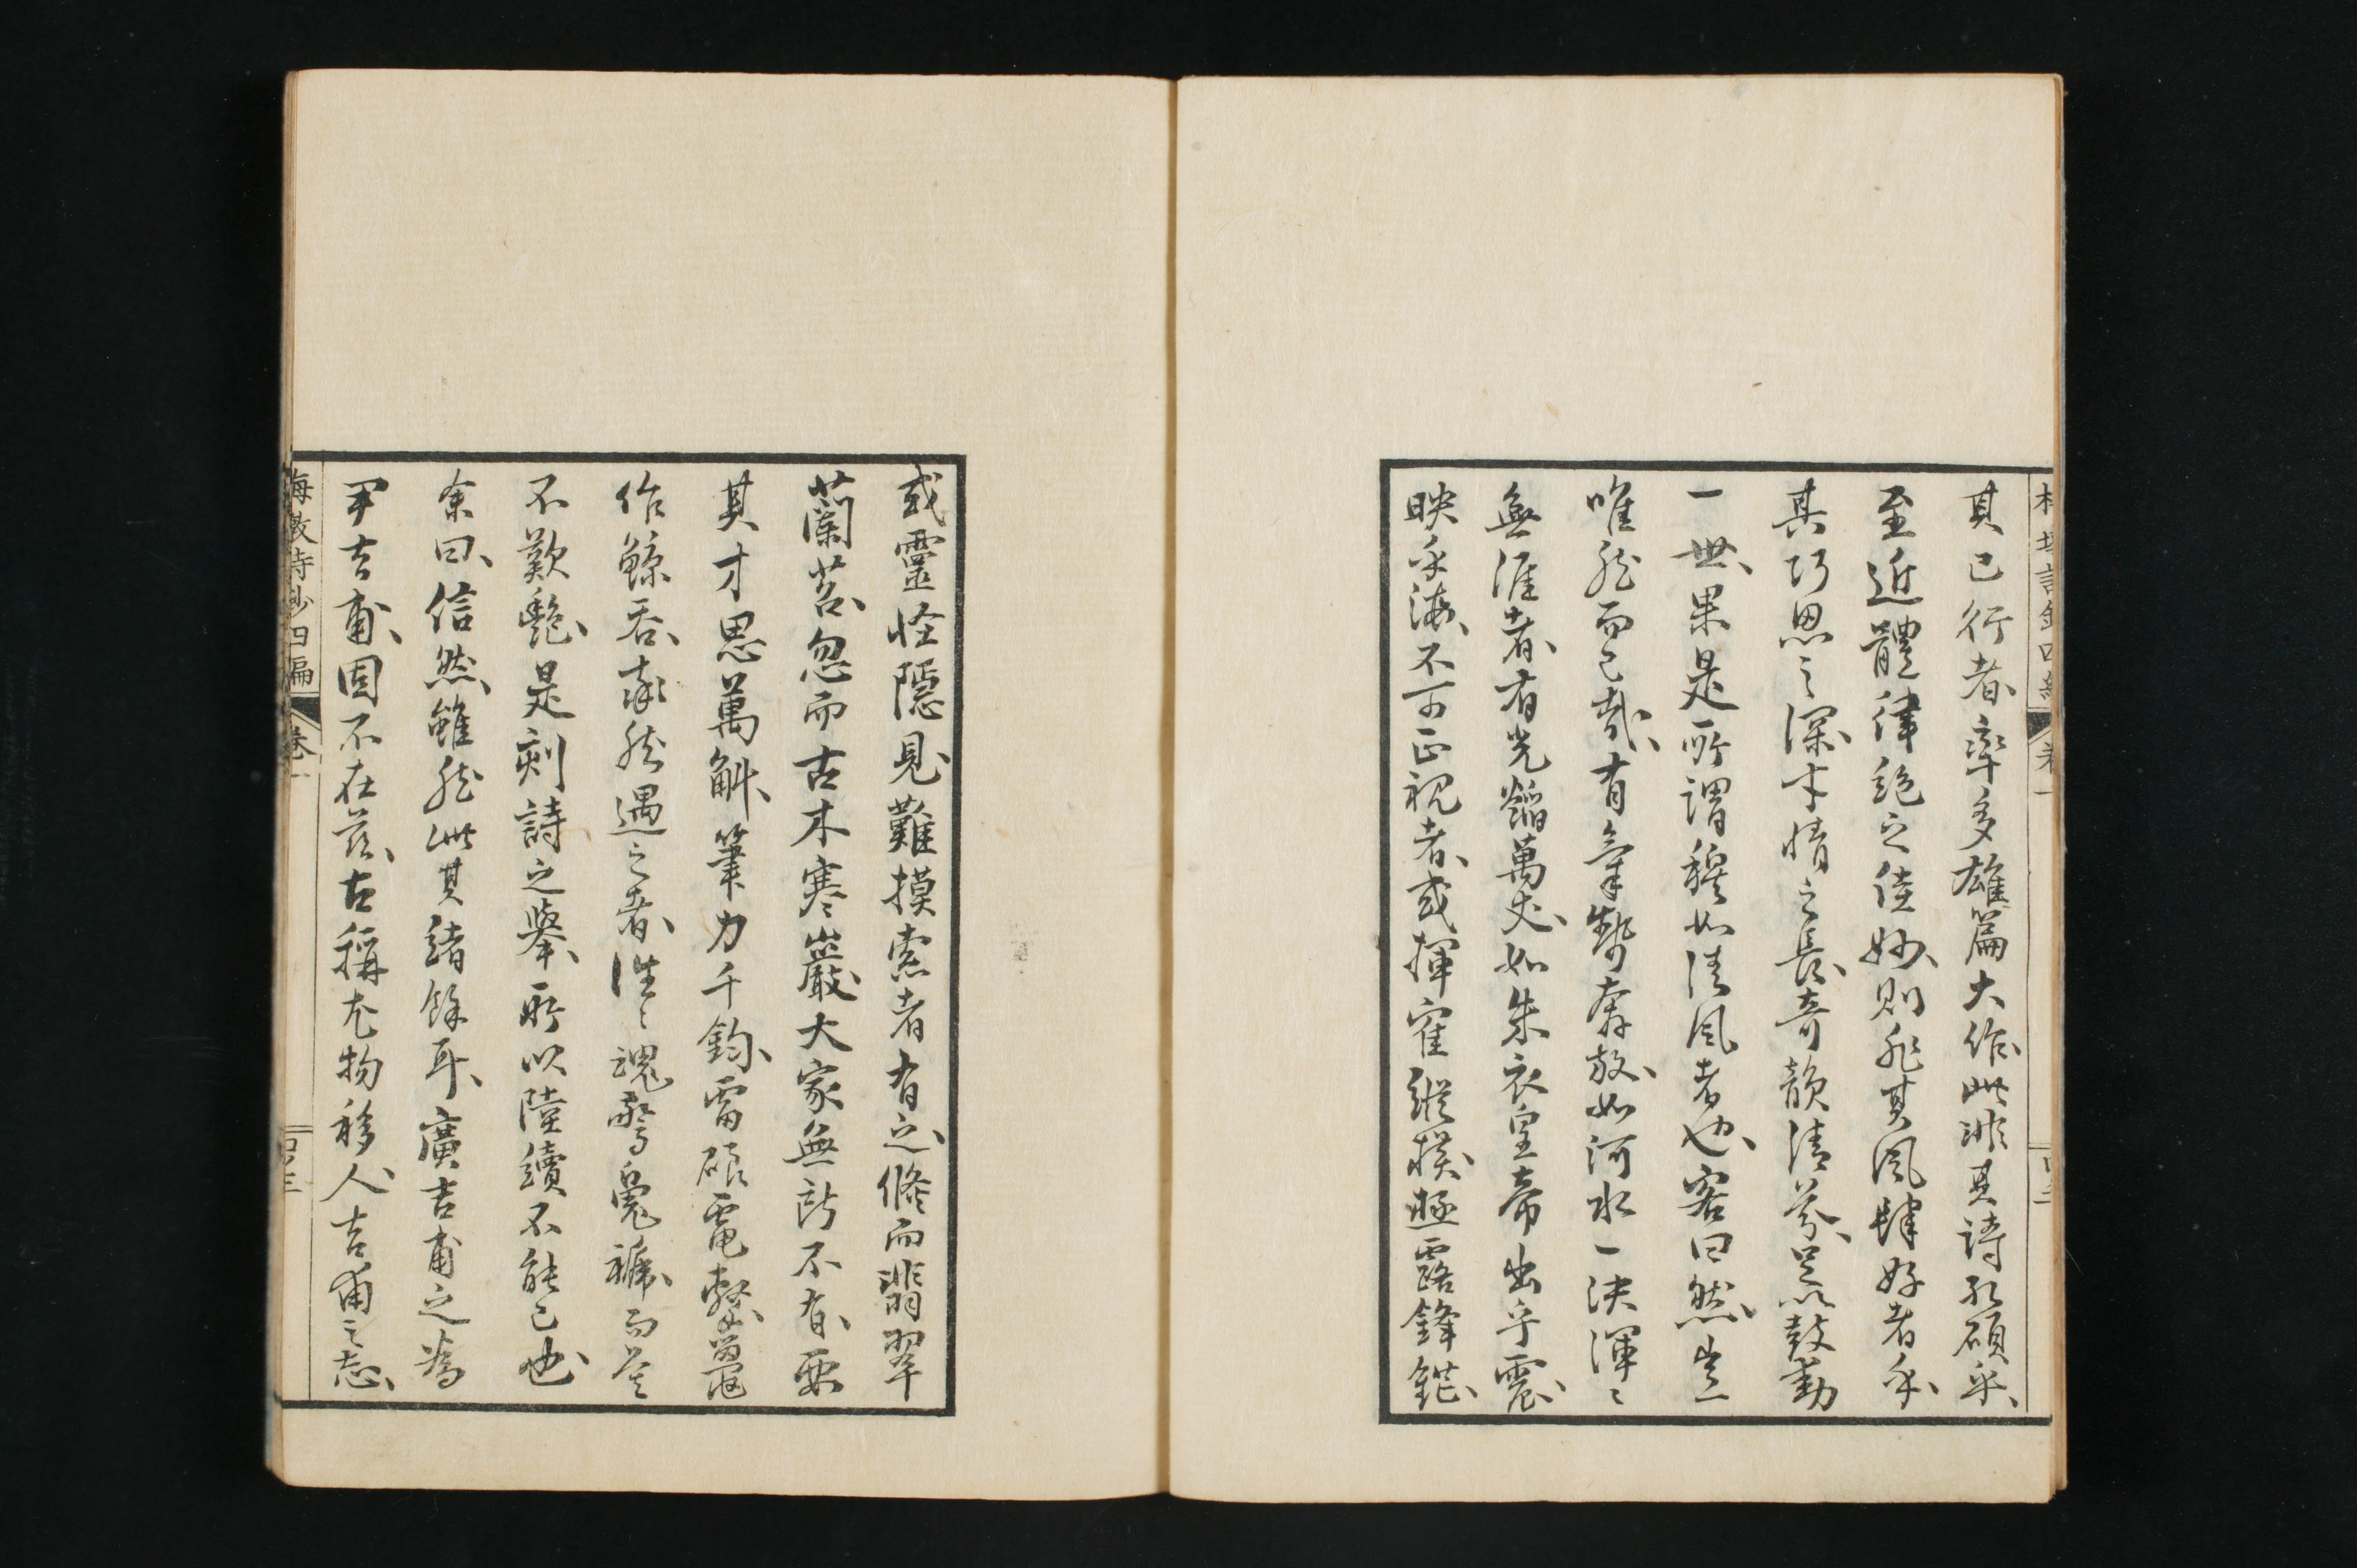 其已行者、率多雄篇大作、此非其詩孔碩乎、
至近體律絶之佳妙、則非其風肆好者乎、
其巧思之深、才情之長、奇韻清芬、足以鼓動
一世、果是所謂穆如清風者也、客曰、然、豈
唯然而已哉、有氣勢奔放、如河水一決渾〻
無涯者、有光燄萬丈、如朱衣皇帝出乎震、
映乎海、不可正視者、或揮霍縱横、極露鋒鋩、
或靈怪隱見、難摸索者有之、倏而翡翠
蘭苕、忽而古木寒巖、大家無所不有、要
其才思萬斛、筆力千鈞、雷硠電擊、鼉
作鯨吞、嗷然遇之者、往〻魂驚魄褫、而莫
不歎艷、是刻詩之擧、所以陸續不能已也、
余曰、信然、雖然此其緒餘耳、廣吉甫之為
甲吉甫、固不在茲、古稱尤物移人、吉甫之志、
梅墩詩鈔四編 卷一
四三